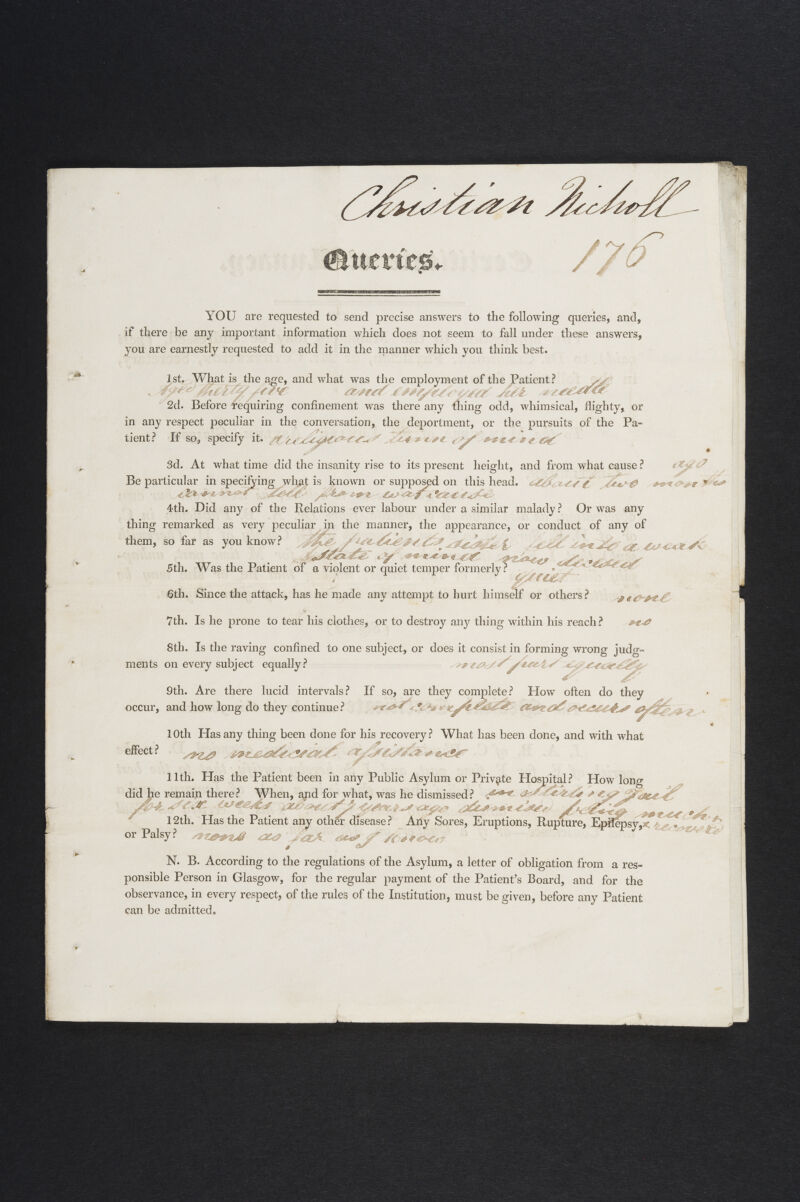 Christian Nicholl
Queries.
176
YOU are requested to send precise answers to the following queries, and,
if there be any important information which does not seem to fall under these answers,
you are earnestly requested to add it in the manner which you think best.
1st. What is the age, and what was the employment of the Patient?
Aged thirty five and employed her needle
2d. Before requiring confinement was there any thing odd, whimsical, flighty, or
in any respect peculiar in the conversation, the deportment, or the pursuits of the Pa-
tient? If so, specify it. a religious turn of mind
3d. At what time did the insanity rise to its present height, and from what cause? ago
Be particular in specifying what is known or supposed on this head. about two months
cannot tell from wat cause
4th. Did any of the Relations ever labour under a similar malady? Or was any
thing remarked as very peculiar in the manner, the appearance, or conduct of any of
them, so far as you know? the patients sister fell into a weak
state of mind now decesed
5th. Was the Patient of a violent or quiet temper formerly?
quiet
6th. Since the attack, has he made any attempt to hurt himself or others? none
7th. Is he prone to tear his clothes, or to destroy any thing within his reach? no
8th. Is the raving confined to one subject, or does it consist in forming wrong judg-
ments on every subject equally? most part equally
9th. Are there lucid intervals? If so, are they complete? How often do they
occur, and how long do they continue? not complete and occurs often
10th Has any thing been done for his recovery? What has been done, and with what
effect? no medicial assistance
11th. Has the Patient been in any Public Asylum or Private Hospital? How long
did he remain there? When, and for what, was he dismissed? in stirling Jail
for six weeks about 7 years ago dismised being much
12th. Has the Patient any other disease? Any Sores, Eruptions, Rupture, Epilepsy, recovered
or Palsy? none as far as I know
N. B. According to the regulations of the Asylum, a letter of obligation from a res-
ponsible Person in Glasgow, for the regular payment of the Patient's Board, and for the
observance, in every respect, of the rules of the Institution, must be given, before any Patient
can be admitted.